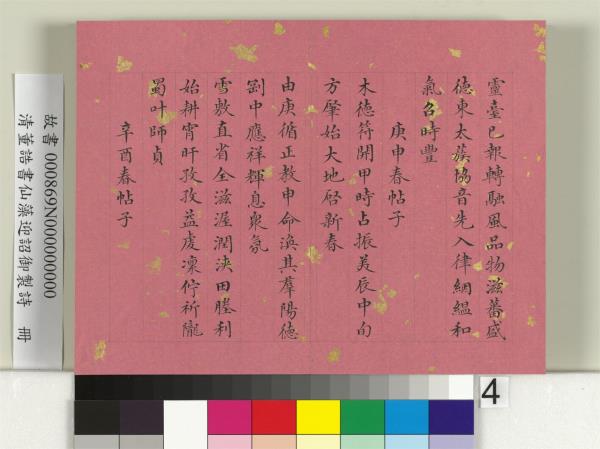 靈臺已報轉融風品物滋蕃盛
德東太蔟協音先入律絪縕和
氣召時豐
庚申春帖子
木德符開甲時占振美辰中旬
方肇始大地啓新春
由庚循正教申命渙其羣陽德
劭中應祥輝息衆氛
雪敷直省全滋渥潤浹田塍利
始耕宵旰孜孜益虔凜佇祈隴
蜀叶師貞
辛酉春帖子
故書 000869N000000000
清董誥書仙藻迎韶御製詩 冊
4